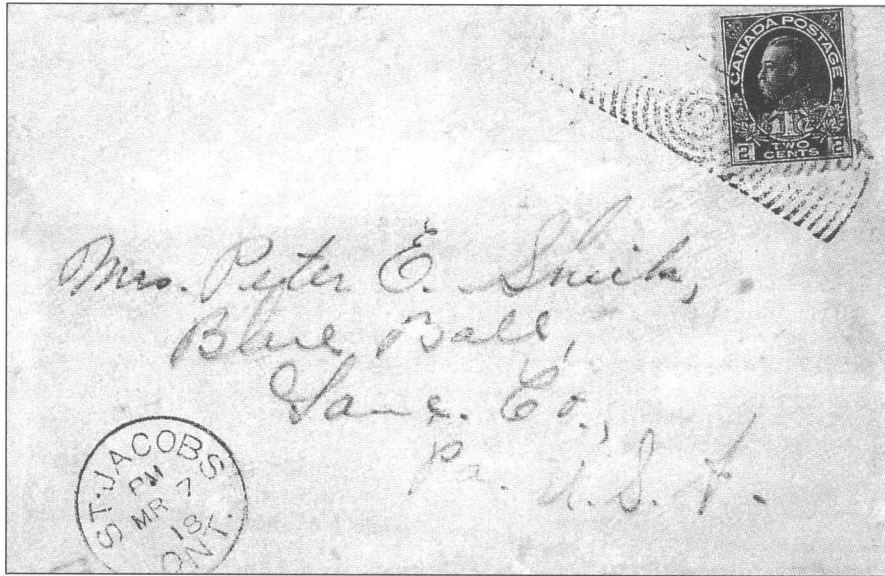 CANADA POSTAGE
1T
2 TWO CENTS 2
Mrs. Peter E.
Blue Ball,
Lanc. Co.,
Pa. U.S.A.
ST. JACOBS
PM
MR 7
18
ONT.